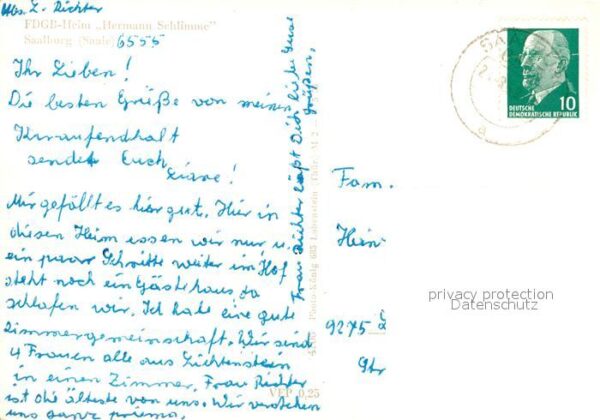 Abs. L. Richter
FDGB-Heim „Hermann Schlimme"
Saalburg (Saale) 6555
Ihr Lieben!
Die besten Grüße von meinem
Kuraufenthalt
sendet Euch
Liane!
Mir gefällt es hier gut. Hier in
diesem Heim essen wir nur u.
ein paar Schritte weiter im Hof
steht noch ein Gästehaus da
schlafen wir. Ich habe eine gute
Zimmergemeinschaft. Wir sind
4 Frauen alle aus Lichtenstein
in einen Zimmer. Frau Richter
ist die älteste von uns. Wir verstehen
uns ganz prima.
Frau Richter läßt Dich liebe
grüßen.
Photo-König 685 Lobenstein Thür. M 2
VEP 0,25
SAAL
DEUTSCHE
DEMOKRATISCHE REPUBLIK
10
Fam.
Hein
9275 L
Str
privacy protection
Datenschutz